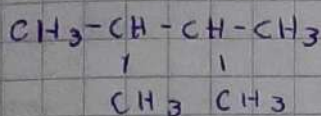 CH3-CH-CH-CH3
CH3 CH3